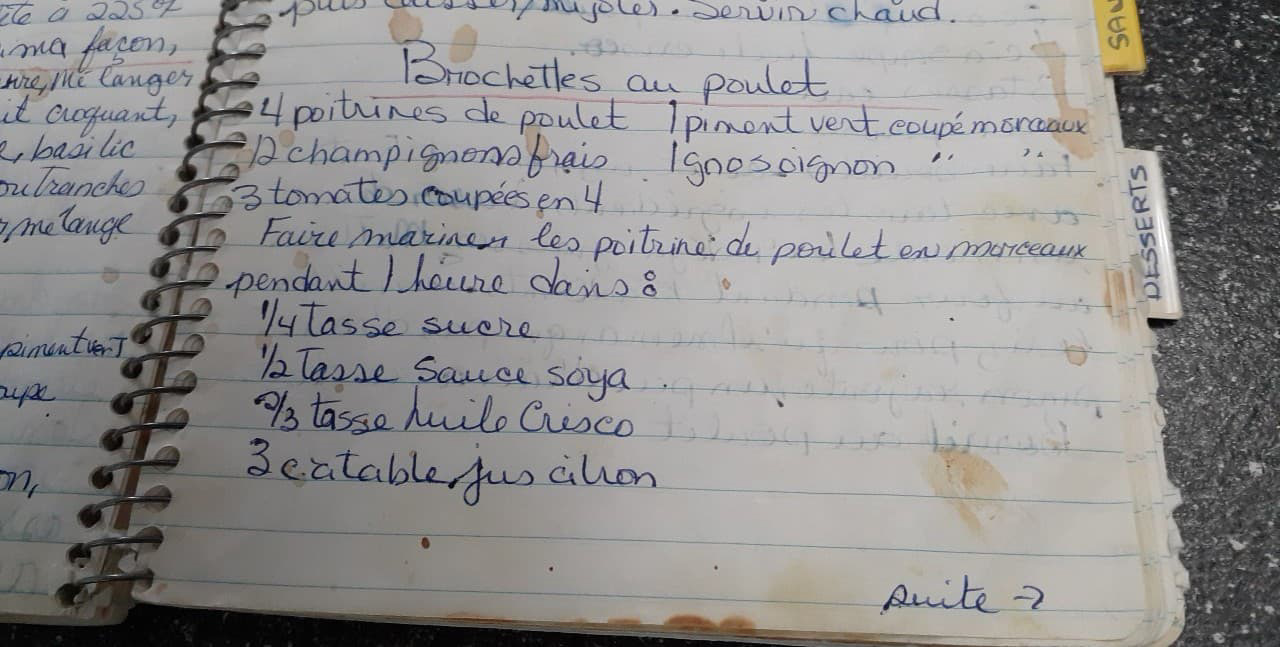 ite à 225°
ma façon,
nre, mélanger
it croquant,
e, basilic
ou Tranches
mélange
piment verT
upe
on,
puis laisser mijoter. Servir chaud.
Brochettes au poulet
4 poitrines de poulet 1 piment vert coupé morceaux
12 champignons frais 1 gros oignon " "
3 tomates coupées en 4
Faire mariner les poitrine de poulet en morceaux
pendant 1 heure dans :
1/4 Tasse sucre
1/2 Tasse Sauce soya
2/3 tasse huile Crisco
3 c. à table jus citron
suite →
SAU
DESSERTS